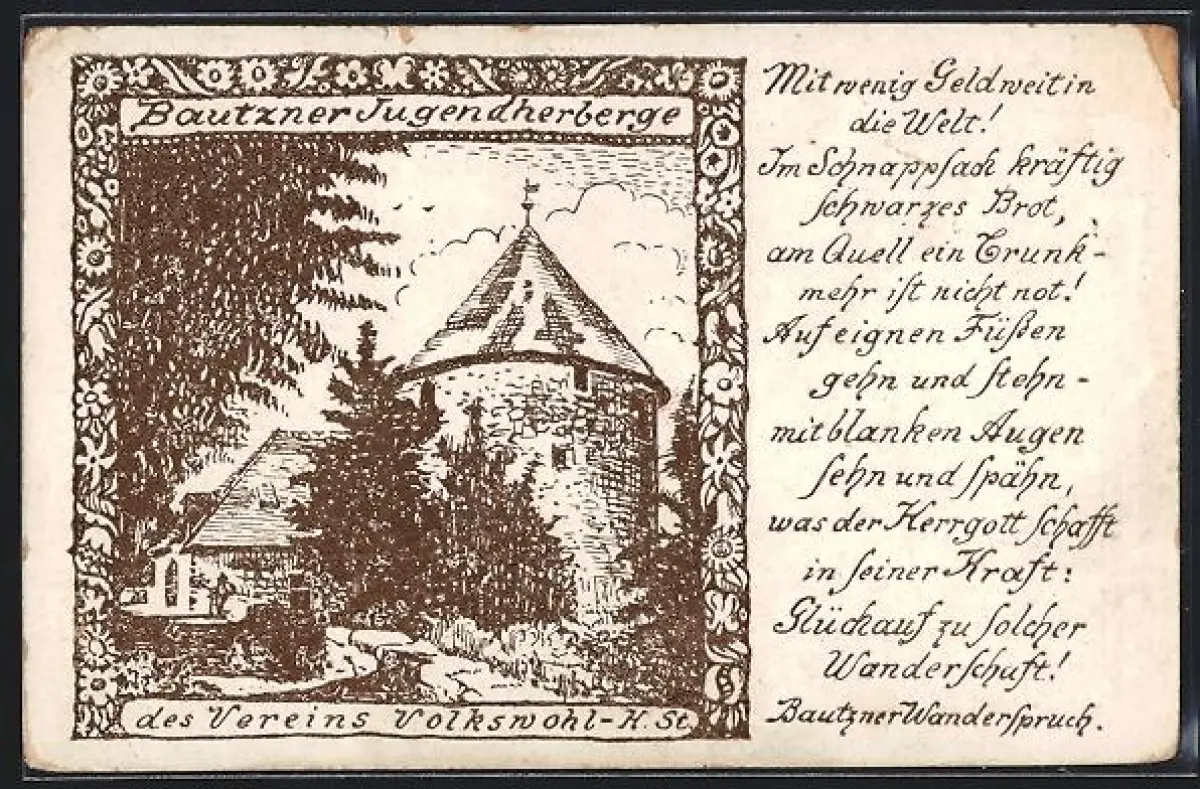 Bautzner Jugendherberge
des Vereins Volkswohl-K. St.
Mit wenig Geld weit in
die Welt!
Im Schnappſack kräftig
ſchwarzes Brot,
am Quell ein Trunk-
mehr iſt nicht not!
Auf eignen Füßen
gehn und ſtehn -
mit blanken Augen
ſehn und ſpähn,
was der Herrgott ſchafft
in ſeiner Kraft:
Glückauf zu ſolcher
Wanderſchaft!
Bautzner Wanderſpruch.